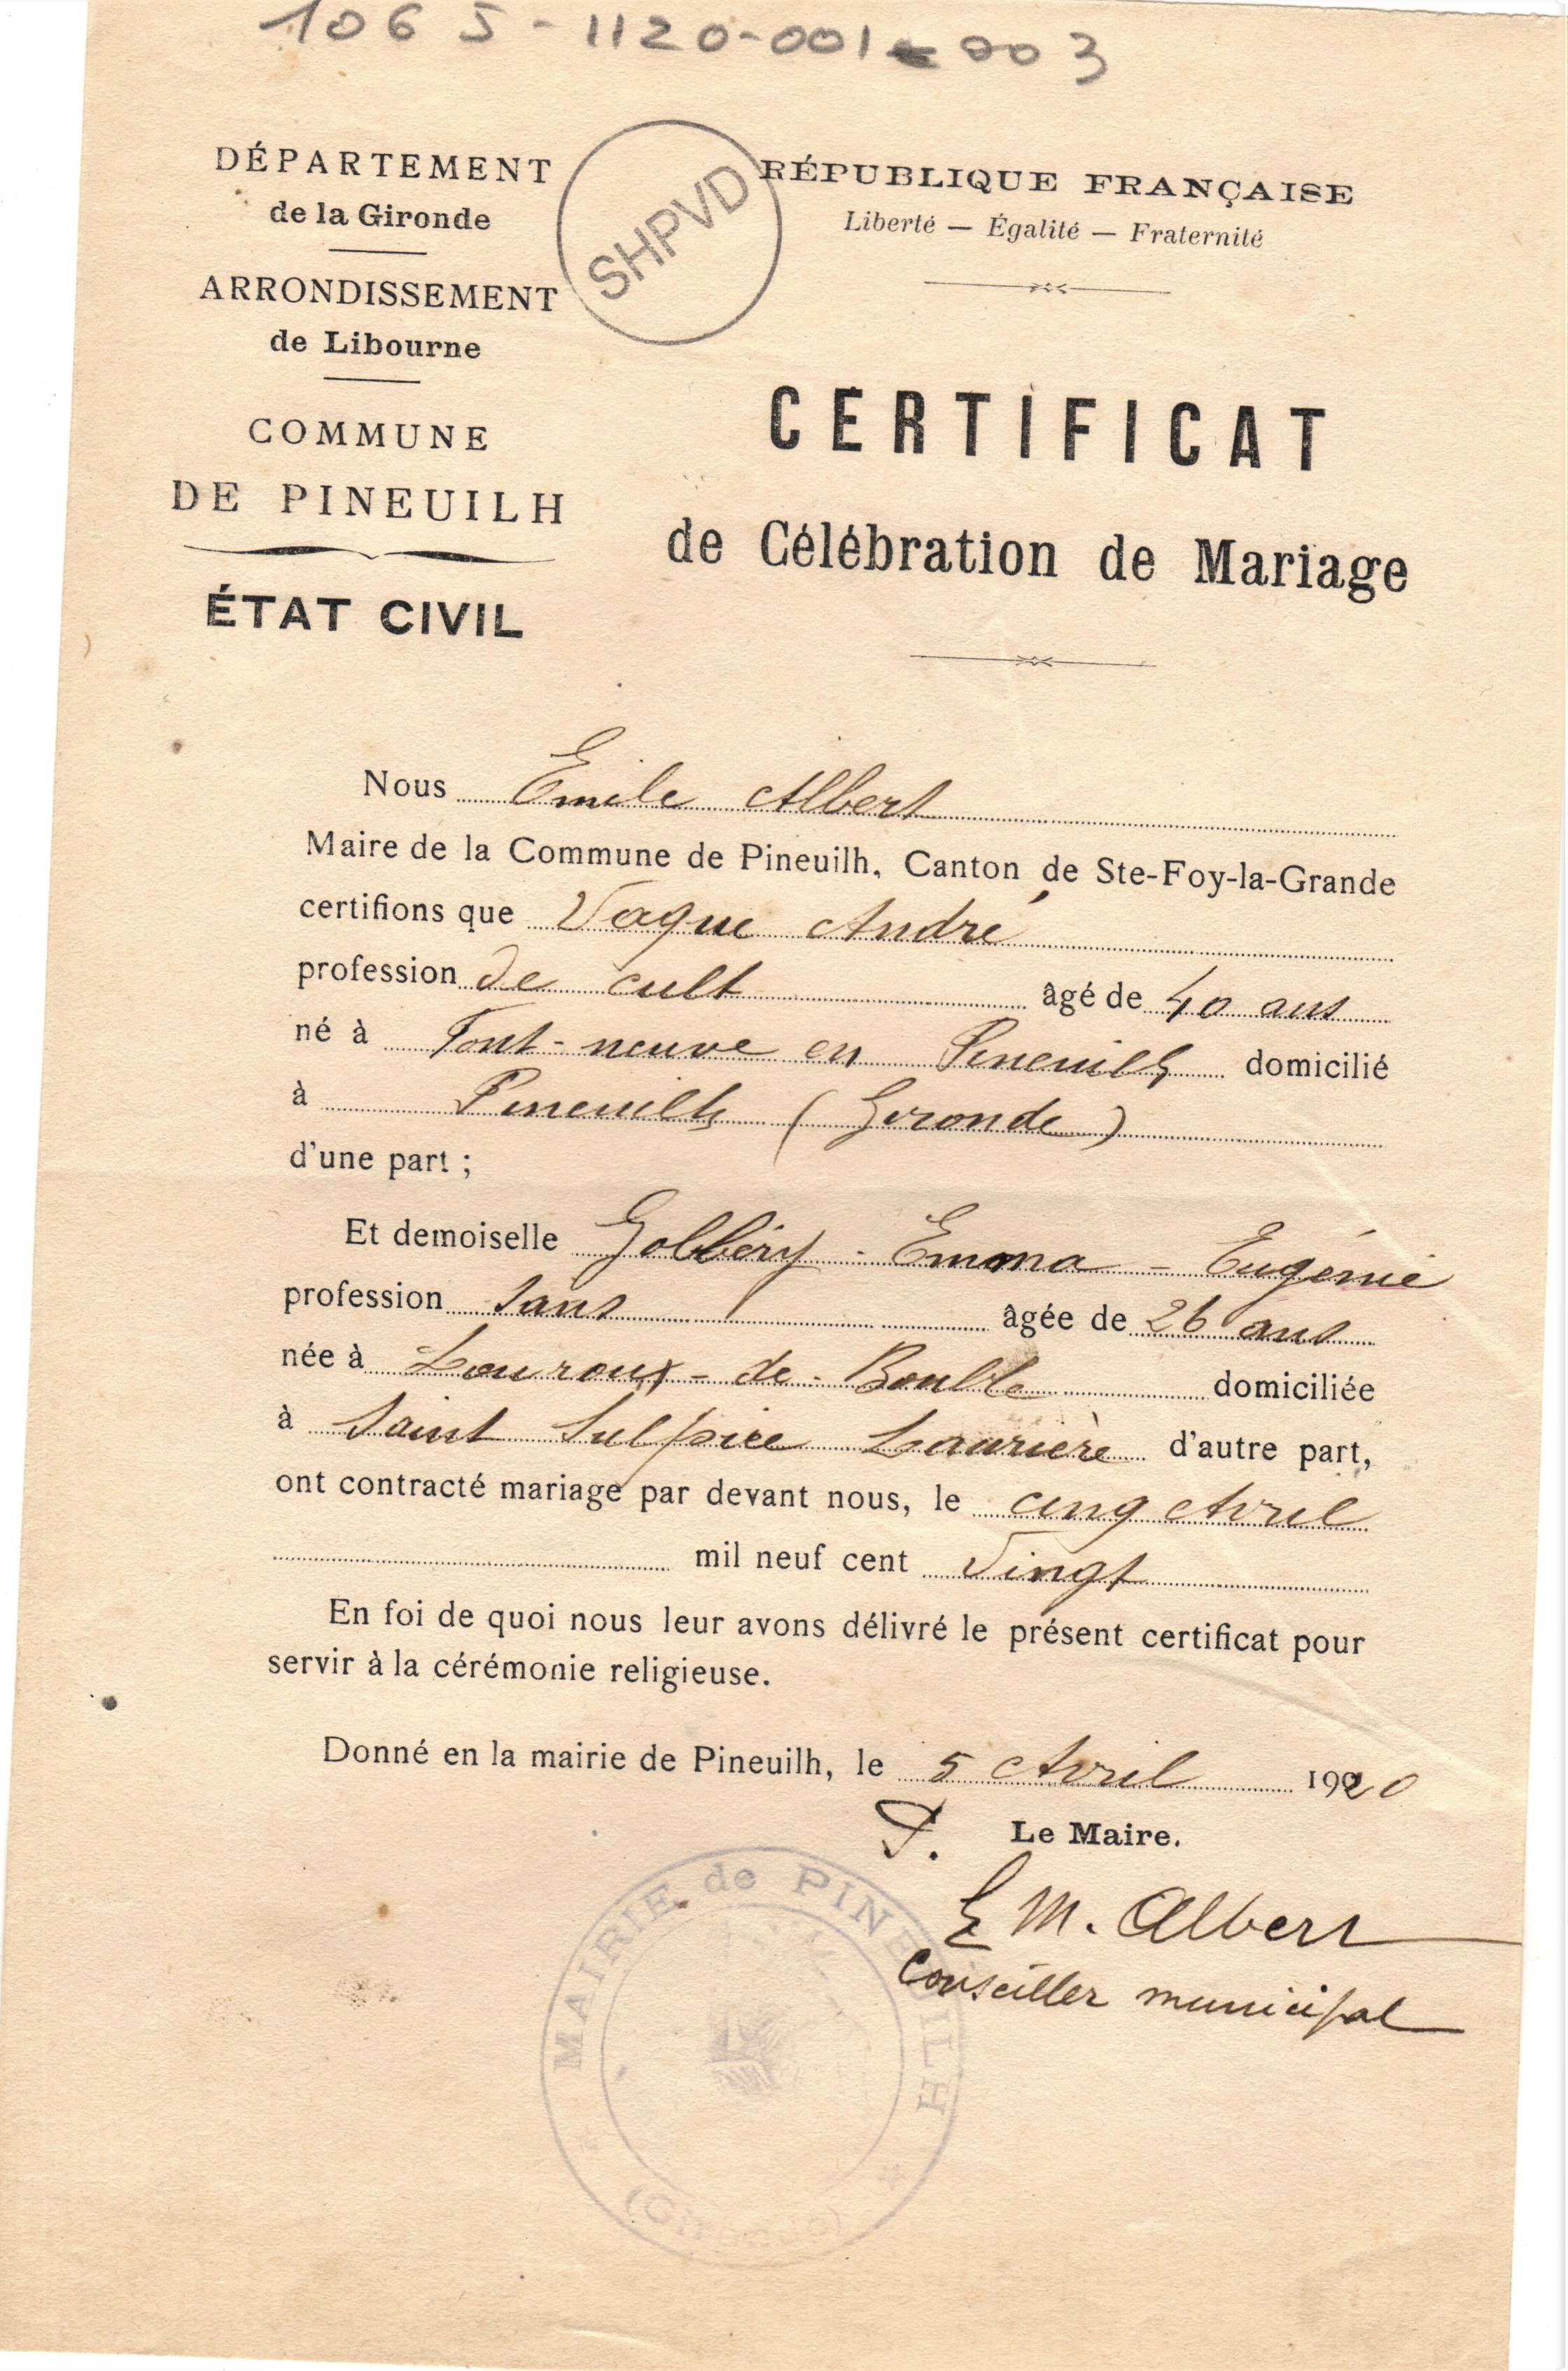 1065-1120-001 003
DÉPARTEMENT
de la Gironde
ARRONDISSEMENT
de Libourne
COMMUNE
DE PINEUILH
ÉTAT CIVIL
SHPVD
RÉPUBLIQUE FRANÇAISE
Liberté — Égalité — Fraternité
CERTIFICAT
de Célébration de Mariage
Nous Emile Albert
Maire de la Commune de Pineuilh, Canton de Ste-Foy-la-Grande
certifions que Vaque André
profession de cult âgé de 40 ans
né à Font-neuve en Pineuilh domicilié
à Pineuilh (Gironde)
d'une part ;
Et demoiselle Golbéry - Emma - Eugénie
profession sans âgée de 26 ans
née à Louroux-de-Bouble domiciliée
à Saint Sulpice Laurière d'autre part,
ont contracté mariage par devant nous, le cinq Avril
mil neuf cent Vingt
En foi de quoi nous leur avons délivré le présent certificat pour
servir à la cérémonie religieuse.
Donné en la mairie de Pineuilh, le 5 Avril 1920
P. Le Maire.
E M. Albert
Conseiller municipal
MAIRIE de PINEUILH
(Gironde)